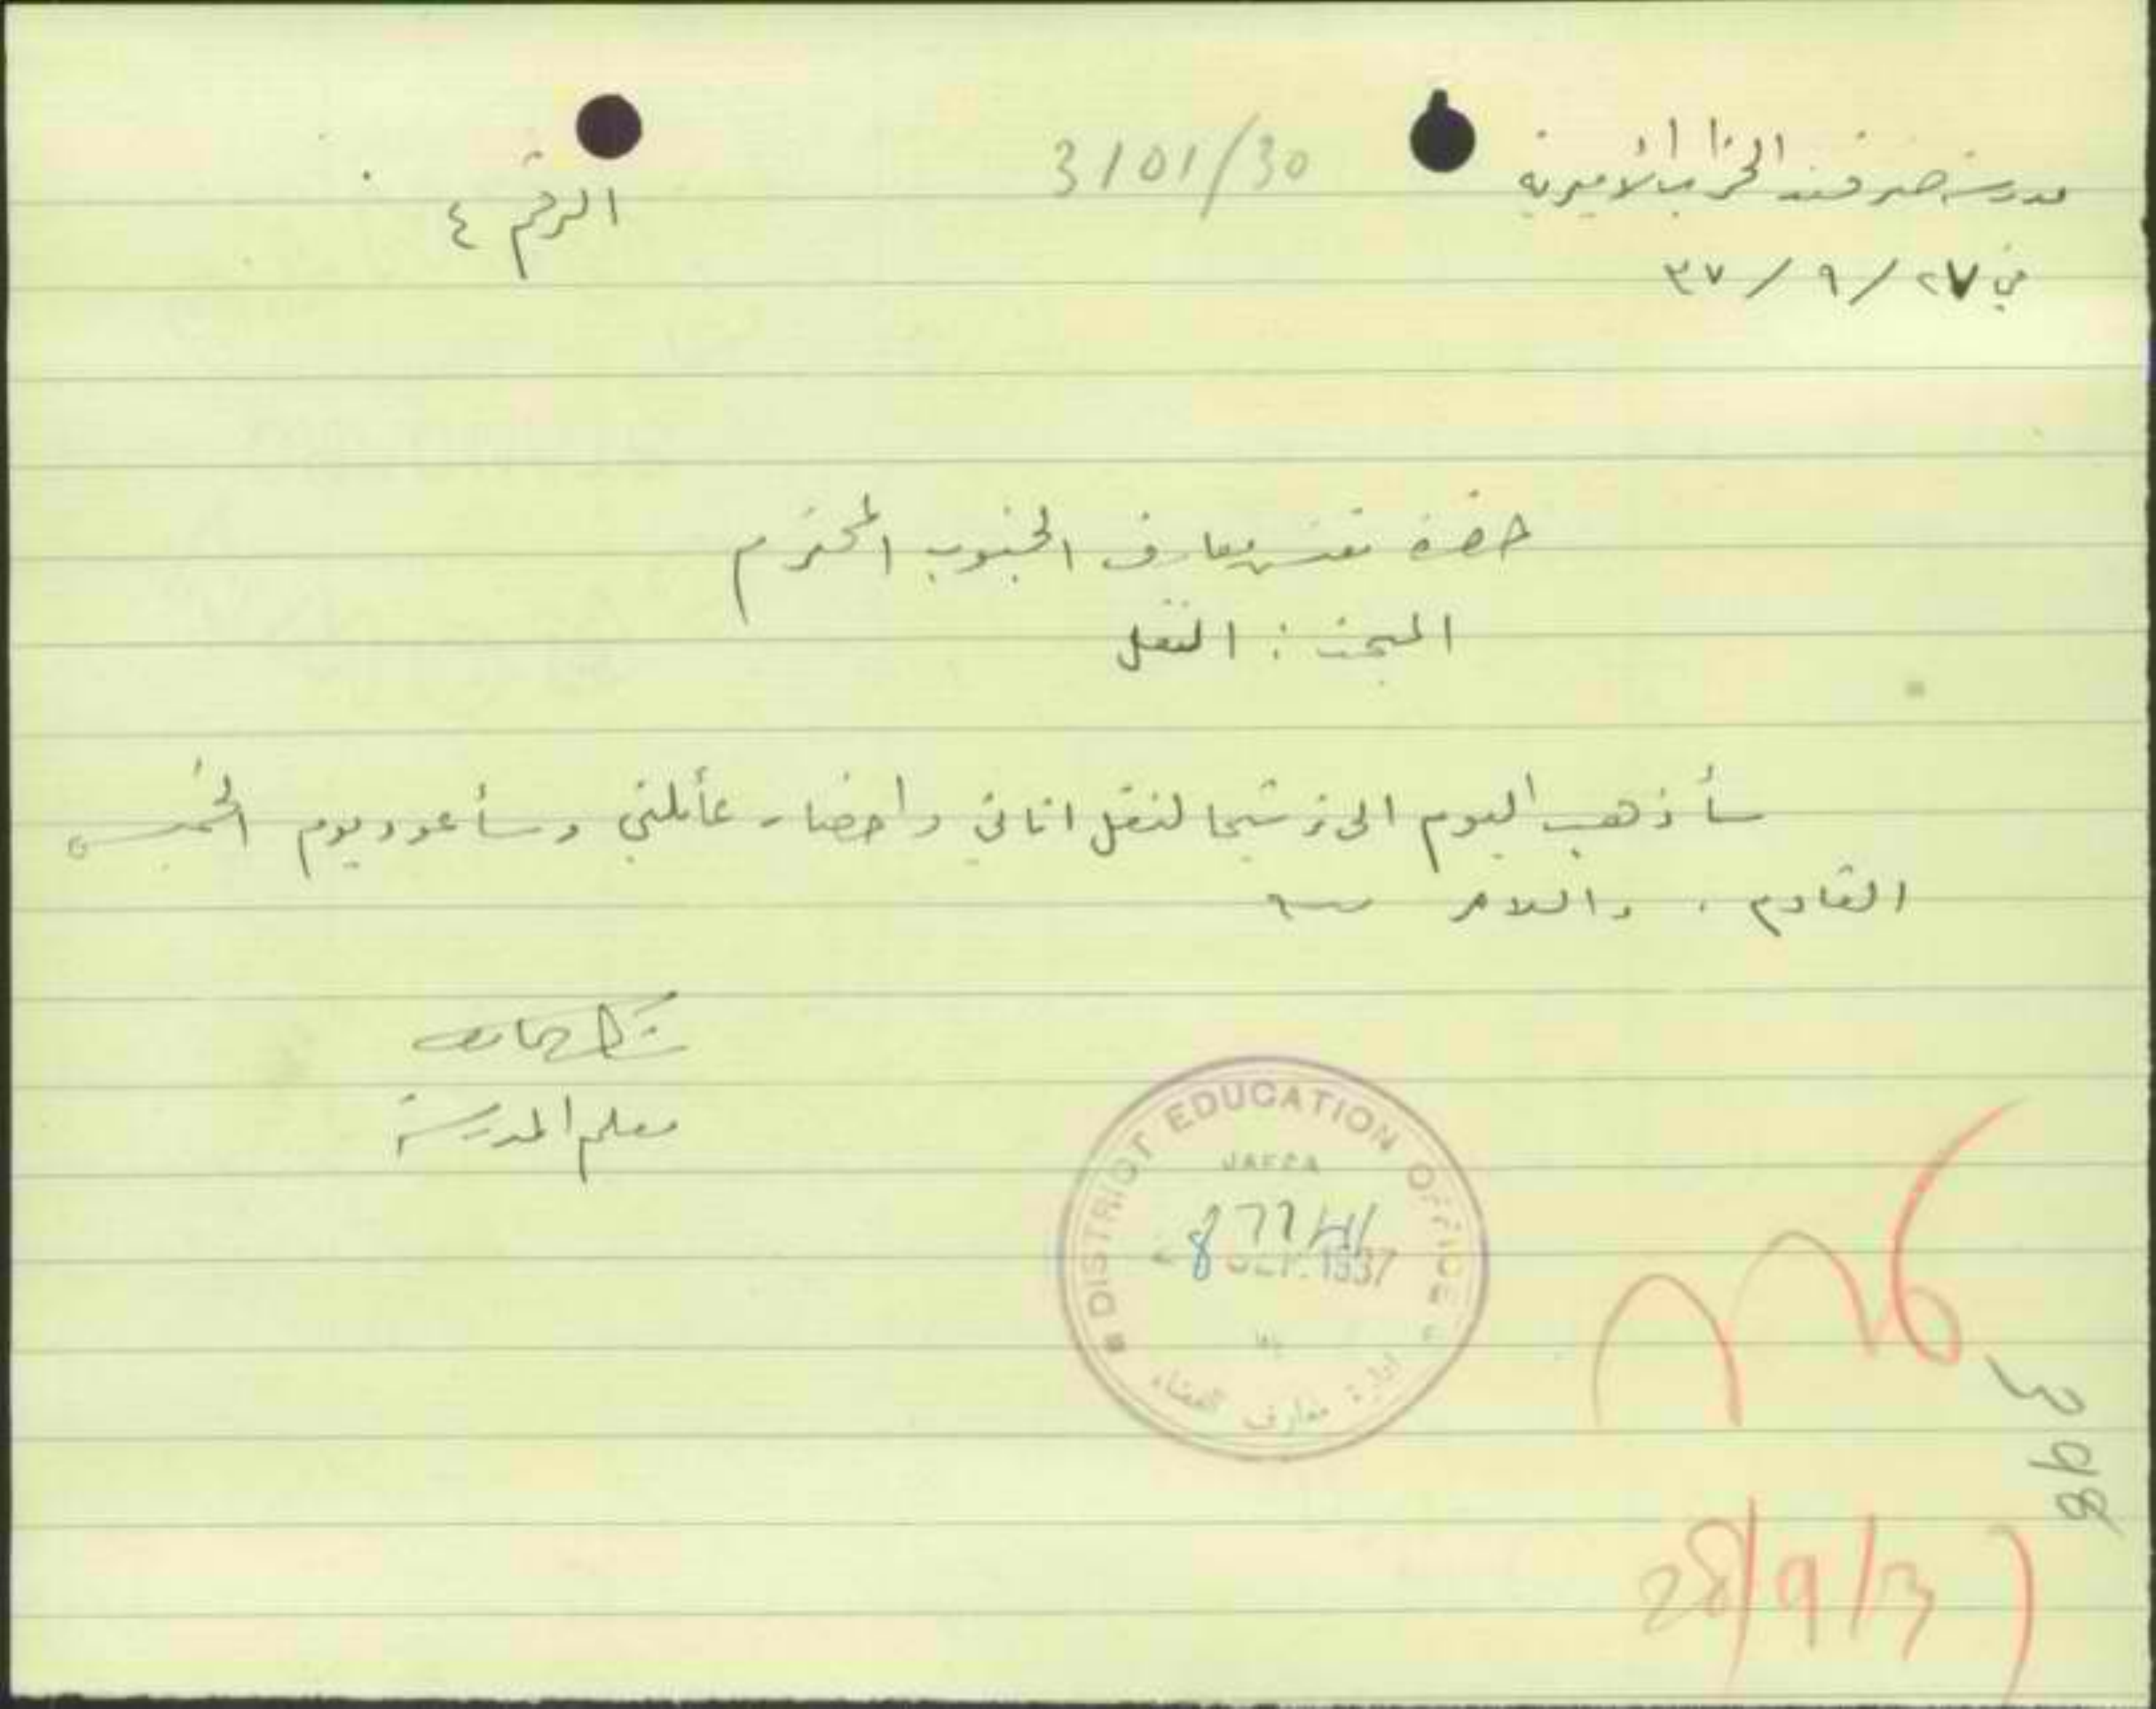 مدرسة صرفند الخراب الأميرية
3101/30
الرقم ٤
في ٢٧ / ٩ / ٣٧
حضرة مفتش معارف الجنوب المحترم
المبحث : النقل
سأذهب اليوم الى ترشيحا لنقل اثاثي واحضار عائلتي وسأعود يوم الخميس
القادم . والسلام
معلم المدرسة
DISTRICT EDUCATION OFFICE
JAFFA
28 SEP. 1937
يافا
ادارة معارف القضاء
398
28/9/37